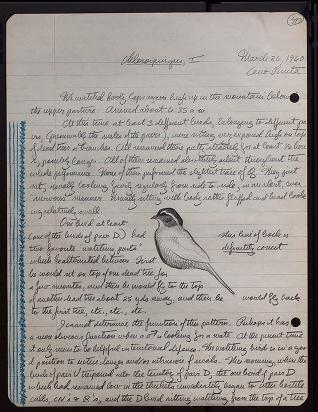 Chlorospingus, I
March 20, 1960
Cerro Punta
We watched Sooty Caps again high up in the mountains below
the upper pasture. Arrived about 6:35 a.m.
At this time at least 3 different birds, belonging to different pa-
irs, (presumably the males of the pairs), were sitting very exposed high on tops
of dead tree branches. All remained there, quite silently, for at least ½ hour
&, possibly longer. All of them remained absolutely silent throughout the
whole performance. None of them performed the slightest trace of
sit, usually looking around regularly from side to side, in an alert, even
"nervous" manner. Usually sitting with body rather fluffed and head looks
relatively small
One bird at least
(one of the birds of pair D) had
two favorite watching posts
which he alternated between. First
he would sit on top of one dead tree for
a few minutes, and then he would fly to the top
of another dead tree about 25 yds away, and then he would fly back
to the first tree, etc., etc., etc.
This kind of back is
definitely correct
I cannot determine the function of this pattern. Perhaps it has
a more obvious function when a ♂ is looking for a mate. At the present time
it only seems to be helpful in territorial defense. The watching bird is in a good
position to notice songs and/or intrusions of rivals. This morning, when the
birds of pair V trespassed into the territory of pair D, the one bird of pair D
which had remained low in the thickets immediately began to utter hostile
calls, CN's & R's, and the D bird sitting watching from the top of a tree